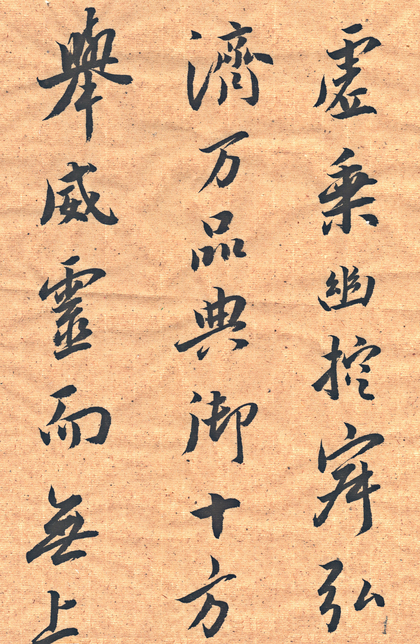 虛乘幽控寂弘
濟万品典御十方
舉威靈而無上